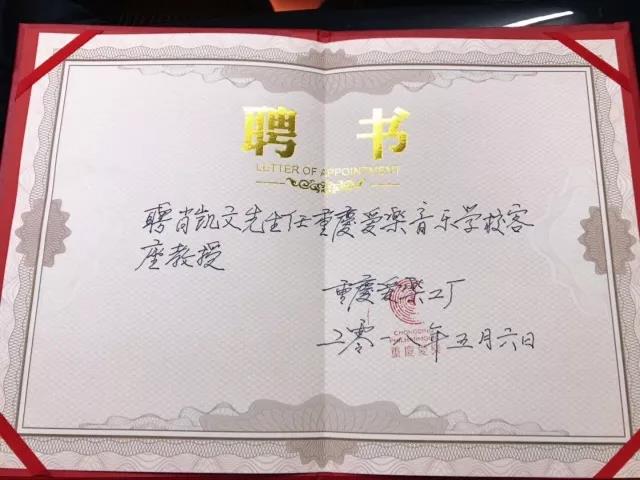 聘 书
LETTER OF APPOINTMENT
聘肖凯文先生任重慶爱樂音乐学校客
座教授
重慶爱樂工厂
CHONGQING
PHILHARMONIC
重慶爱樂
二零一 年五月六日